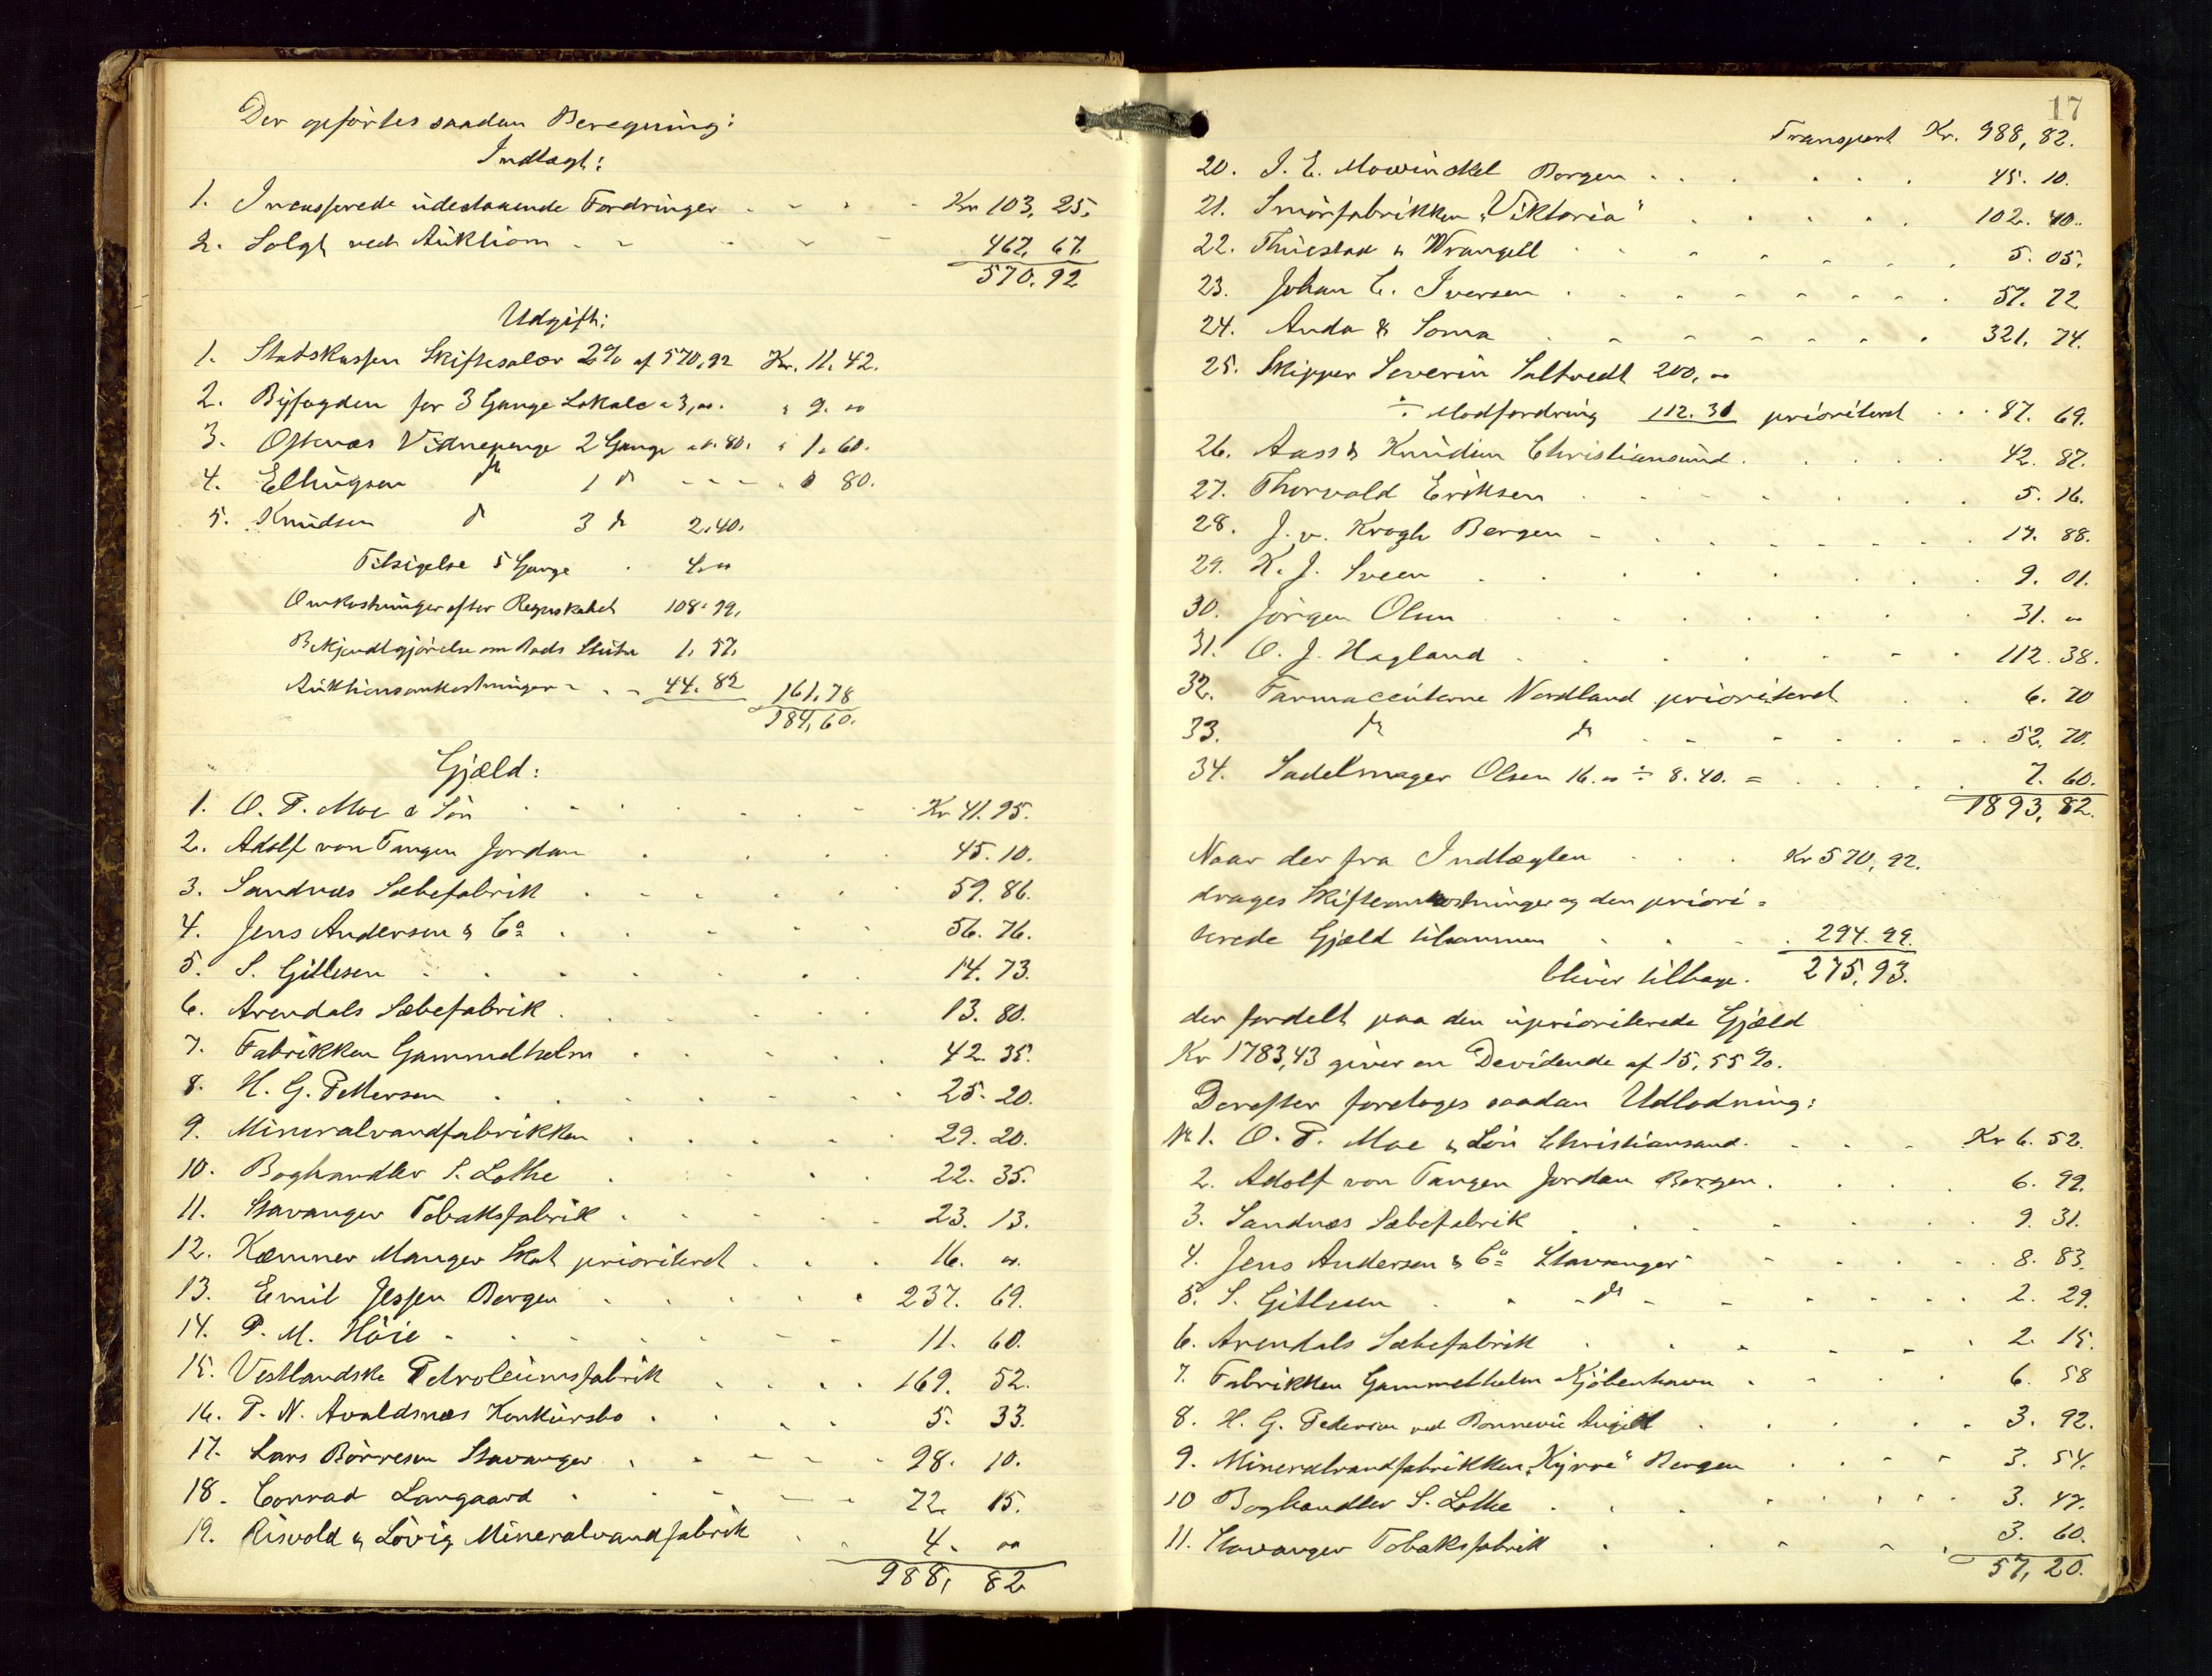 Der opførtes saadan Beregning:
Indtægt:
1. Incasserede udestaaende Fordringer - - - - Kr 103,25.
2. Solgt ved Auktion - - - - - 467,67.
570.92
Udgift:
1. Statskassen Skiftesalær 2% af 570,92 Kr. 11.42.
2. Byfogden for 3 Gange Lokale a 3,00. " 9.00
3. Oftenæs Vidnepenge 2 Gange a 0.80. " 1.60.
4. Ellingsen do 1 do - - - - " 0 80.
5. Knudsen do 3 do 2.40.
Tilsigelse 5 Gange . 4.00
Omkostninger efter Regnskabet 108.99.
Bekjendtgjørelse om Bods Slutn 1.57.
Auktionsomkostninger - . - 44.82 161.78
184,60.
Gjæld:
1. O. T. Moe & Søn - - - - Kr 41.95.
2. Adolf von Tangen Jordan . . . . 45.10.
3. Sandnæs Sæbefabrik . . . . . 59.86.
4. Jens Andersen & Co . . . . . 56.76.
5. S. Gitlesen . . . . . . 14.73.
6. Arendals Sæbefabrik . . . . . 13.80.
7. Fabrikken Gammelholm . . . . 42.35.
8. H. G. Pettersen . . . . . 25.20.
9. Mineralvandfabrikken . . . . 29.20.
10. Boghandler S. Lothe . . . . 22.35.
11. Stavanger Tobaksfabrik . . . . 23.13.
12. Kæmner Manger Skat prioriteret . . . 16.00.
13. Emil Jessen Bergen . . . . . 237.69.
14. P. M. Høie . . . . . . 11.60.
15. Vestlandske Petroleumsfabrik . . . . 169.52.
16. P. N. Avaldsnæs Konkursbo . . . . 5.33.
17. Lars Børresen Stavanger . . . . . 98.10.
18. Conrad Langaard . . . . . 72.15.
19. Risvold & Løvig Mineralvandfabrik . . 4.00
988,82
17
Transport Kr. 988,82.
20. J. E. Mowinckel Bergen . . . . . . 45.10.
21. Smørfabrikken "Viktoria" . . . . . 102.40.
22. Thiestad & Wrangell . . . . . . 5.05.
23. Johan E. Iversen . . . . . . . 57.72
24. Anda & Soma . . . . . . . 321.74.
25. Skipper Severin Saltvedt 200,00
÷ Modfordring 112.31 prioriteret . . . 87.69.
26. Aass & Knudsen Christiansund . . . . . 42.87.
27. Thorvald Eriksen . . . . . . . 5.16.
28. J. v. Krogh Bergen - . . . . . . 17.88.
29. K. J. Sveen . . . . . . . 9.01.
30. Jørgen Olsen . . . . . . . 31.00
31. O. J. Hagland . . . . . . . 112.38.
32. Farmaceuterne Nordland prioriteret . . 6.70
33. do do . . . . . . 52.70.
34. Sadelmager Olsen 16.00 ÷ 8.40. = . . . . 7.60.
1893,82.
Naar der fra Indtægten . . . Kr 570,92.
drages Skifteomkostninger og den priori=
terede Gjæld tilsammen . . . . 294.99.
bliver tilbage . 275,93.
der fordelt paa den uprioriterede Gjæld
Kr 1783,43 giver en Devidende af 15,55%.
Derefter foretages saadan Udlodning:
No 1. O. T. Moe & Søn Christiansand . . . . Kr 6.52.
2. Adolf von Tangen Jordan Bergen . . . . 6.99.
3. Sandnæs Sæbefabrik . . . . . . 9.31.
4. Jens Andersen & Co Stavanger . . . . . 8.83.
5. S. Gitlesen . . do - . . . . . 2.29.
6. Arendals Sæbefabrik . . . . . . 2.15.
7. Fabrikken Gammelholm Kjøbenhavn . . . . 6.58
8. H. G. Pedersen ved Bonnevie Angell . . . . . 3.92.
9. Mineralvandfabrikken "Kyrre" Bergen . . . . 3.54.
10 Boghandler S. Lothe . . . . . . . 3.47.
11. Stavanger Tobaksfabrik . . . . . 3.60.
57,20.